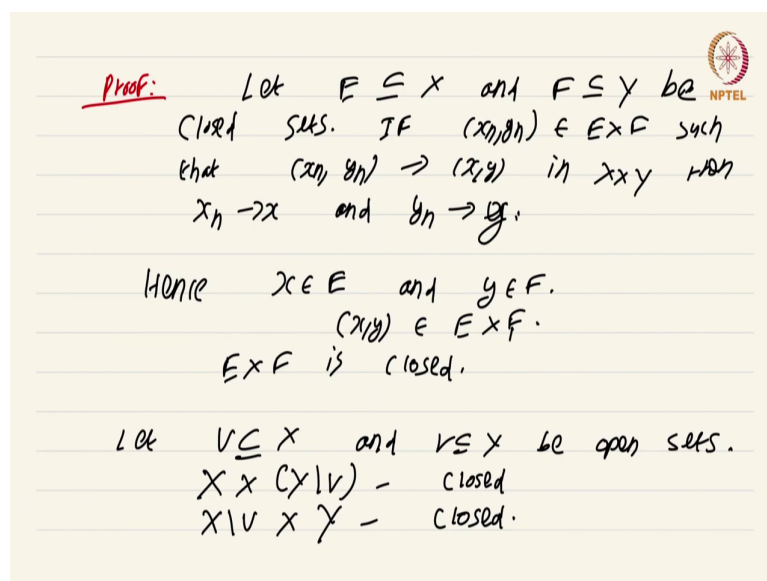 Proof: Let E ⊆ X and F ⊆ Y be
NPTEL
closed sets. If (xn, yn) ∈ E×F such
that (xn, yn) → (x,y) in X×Y then
xn → x and yn → y.
Hence x ∈ E and y ∈ F.
(x,y) ∈ E × F.
E×F is closed.
Let U ⊆ X and V ⊆ Y be open sets.
X × (Y\V) - closed
X\U × Y - closed.